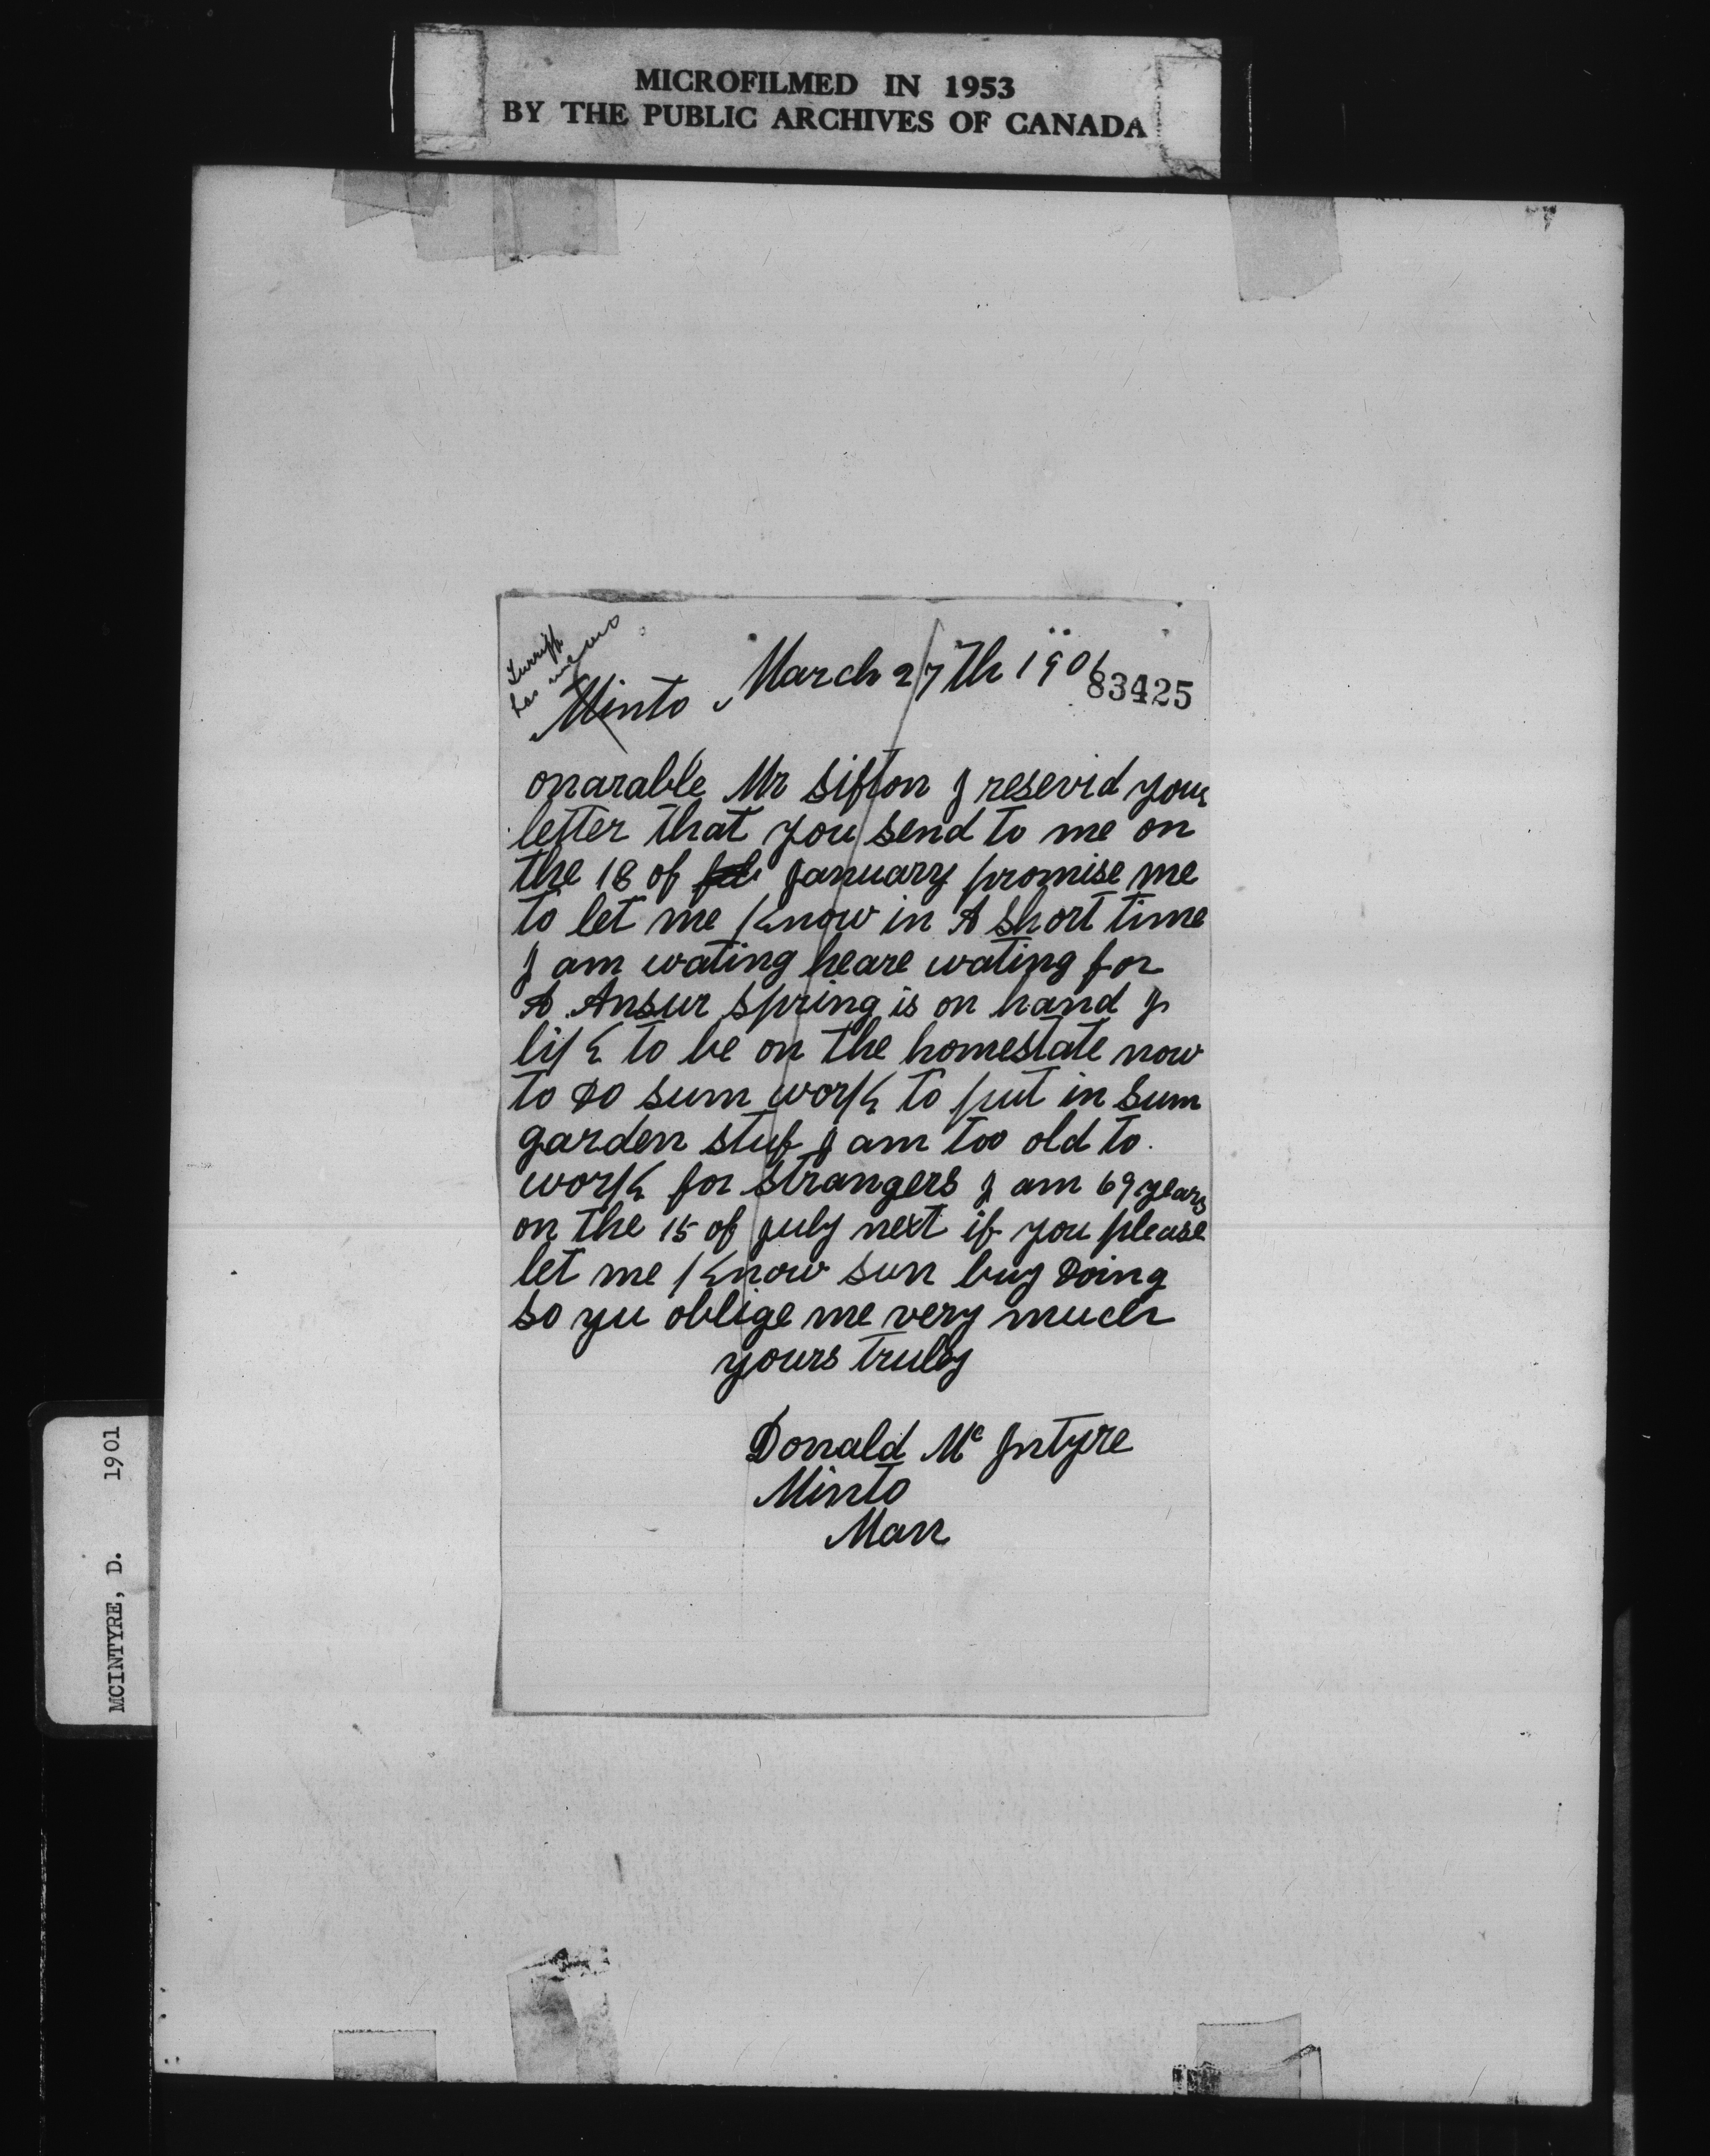 MICROFILMED IN 1953
BY THE PUBLIC ARCHIVES OF CANADA
Turriff
has memo
Minto March 27th 1901
83425
onarable Mr Sifton I resevid your
letter that you send to me on
the 18 of feb January promise me
to let me know in A short time
I am wating heare wating for
A Ansur spring is on hand I
lik to be on the homestate now
to Do sum work to put in sum
garden stuf I am too old to
work for strangers I am 69 years
on the 15 of july next if you please
let me know sun buy Doing
so yu oblige me very much
yours truly
Donald Mc Intyre
Minto
Man
MCINTYRE, D. 1901